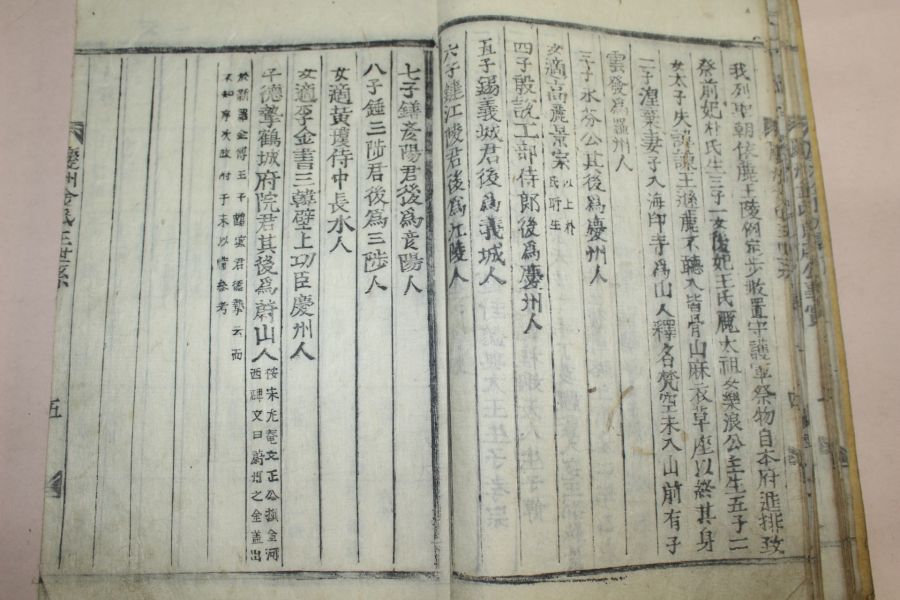 我列聖朝依麗王陵例定步數置守護軍祭物自本府進排致
祭前妃朴氏生三子一女後妃王氏麗太祖女樂浪公主生五子二
女太子失諱諫王遜麗不聽入皆骨山麻衣草座以終其身
二子湟棄妻子入海印寺爲山人釋名梵空未入山前有子
雲發爲羅州人
三子永分公其後爲慶州人
女適高麗景宗以上朴
氏所生
四子殷說工部侍郎後爲慶州人
五子錫義城君後爲義城人
六子鍵江陵君後爲江陵人
七子鐥彦陽君後爲彦陽人
八子錘三陟君後爲三陟人
女適黃瓊侍中長水人
女適李金書三韓壁上功臣慶州人
干德摯鶴城府院君其後爲蔚山人按宋尤菴文正公撰金河
西碑文曰蔚州之金盖出
於新羅金傅王子鶴雲君德摯云而
不知序次故付于末以備參考
慶州金氏王世系
五